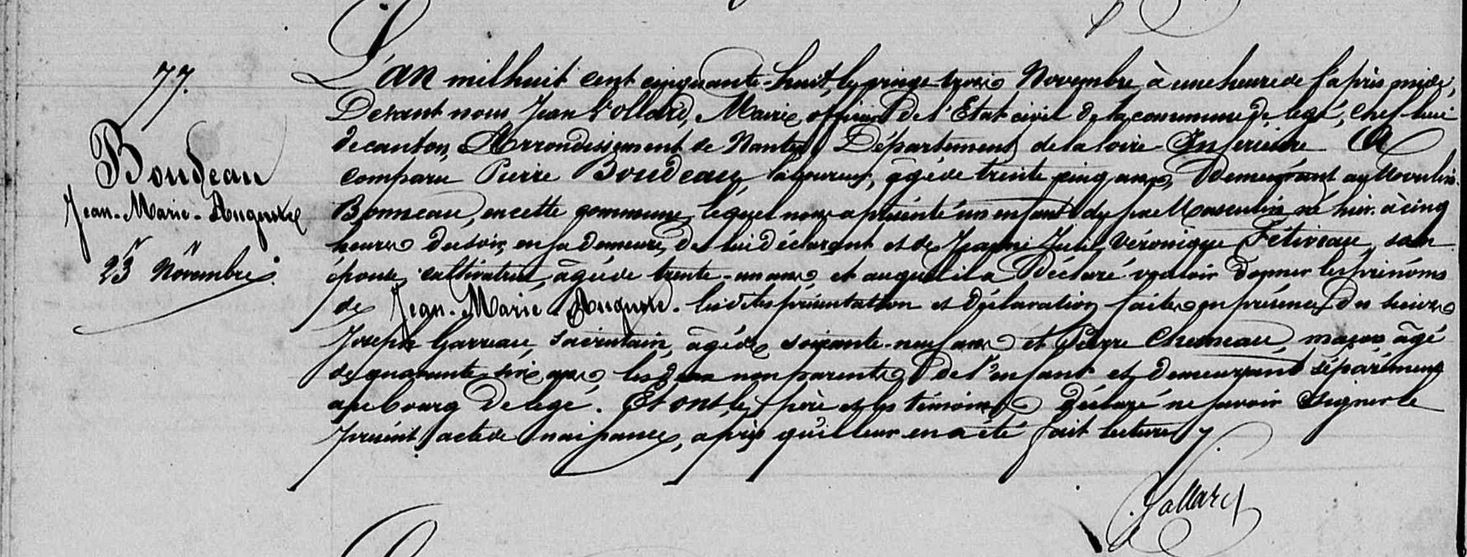 77.
Boudeau
Jean-Marie-Auguste
23 Novembre.
L'an mil huit cent cinquante-huit, le vingt trois Novembre à une heure de l'après midi,
Devant nous Jean Vollard, Maire, officier De l'Etat civil de la commune de legé, chef lieu
de canton, Arrondissement de Nantes, Département de la loire-Inferieure A
comparu Pierre Boudeau, laboureur, âgé de trente cinq ans, Demeurant au Moulin-
Bonneau, en cette commune, lequel nous a présenté un enfant du sexe Masculin, né hier à cinq
heures du soir, en sa demeure, de lui déclarant et de Jeanne Julie Véronique Fétiveau, son
épouse, cultivatrice, âgée de trente-un ans, et auquel il a Déclaré vouloir donner les prénoms
de Jean-Marie-Auguste. lesdites présentation et Déclaration faites en présence Du sieurs
Joseph Garreau, sacristain, âgé de soixante-neuf ans et Pierre Cheneau, maçon, âgé
de quarante-six ans, les deux non parents De l'enfant et demeurant séparément
au bourg De legé. Et ont, le père et les témoins Déclaré ne savoir signer le
présent acte de naissance, après qu'il leur en a été fait lecture
Vollard